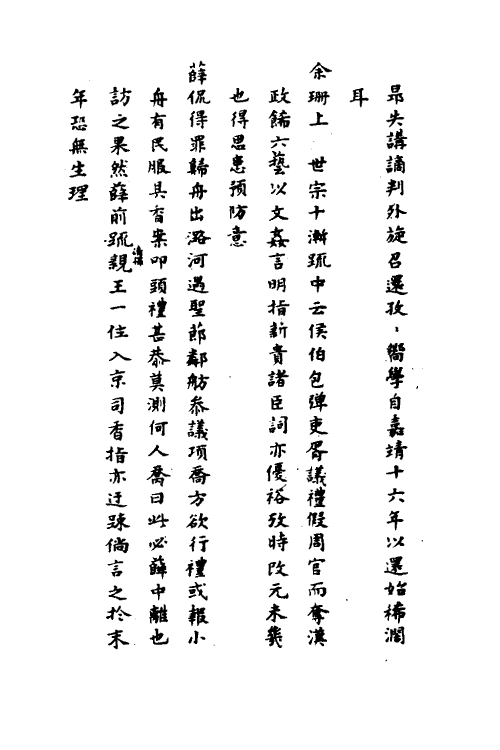 昻失講謫判外旋召還孜〻嚮學自嘉靖十六年以還始稀濶
耳
余珊上　世宗十漸疏中云侯伯包彈吏胥議禮假周官而奪漢
政餙六藝以文姦言明指新貴諸臣詞亦優裕攷時改元未幾
也得思患預防意
薛侃得罪歸舟出潞河遇聖節鄰舫叅議項喬方欲行禮或報小
舟有民服具香案叩頭禮甚恭莫測何人喬曰此必薛中離也
訪之果然薛前疏親王一住入京司香指亦迂踈倘言之扵末
年恐無生理